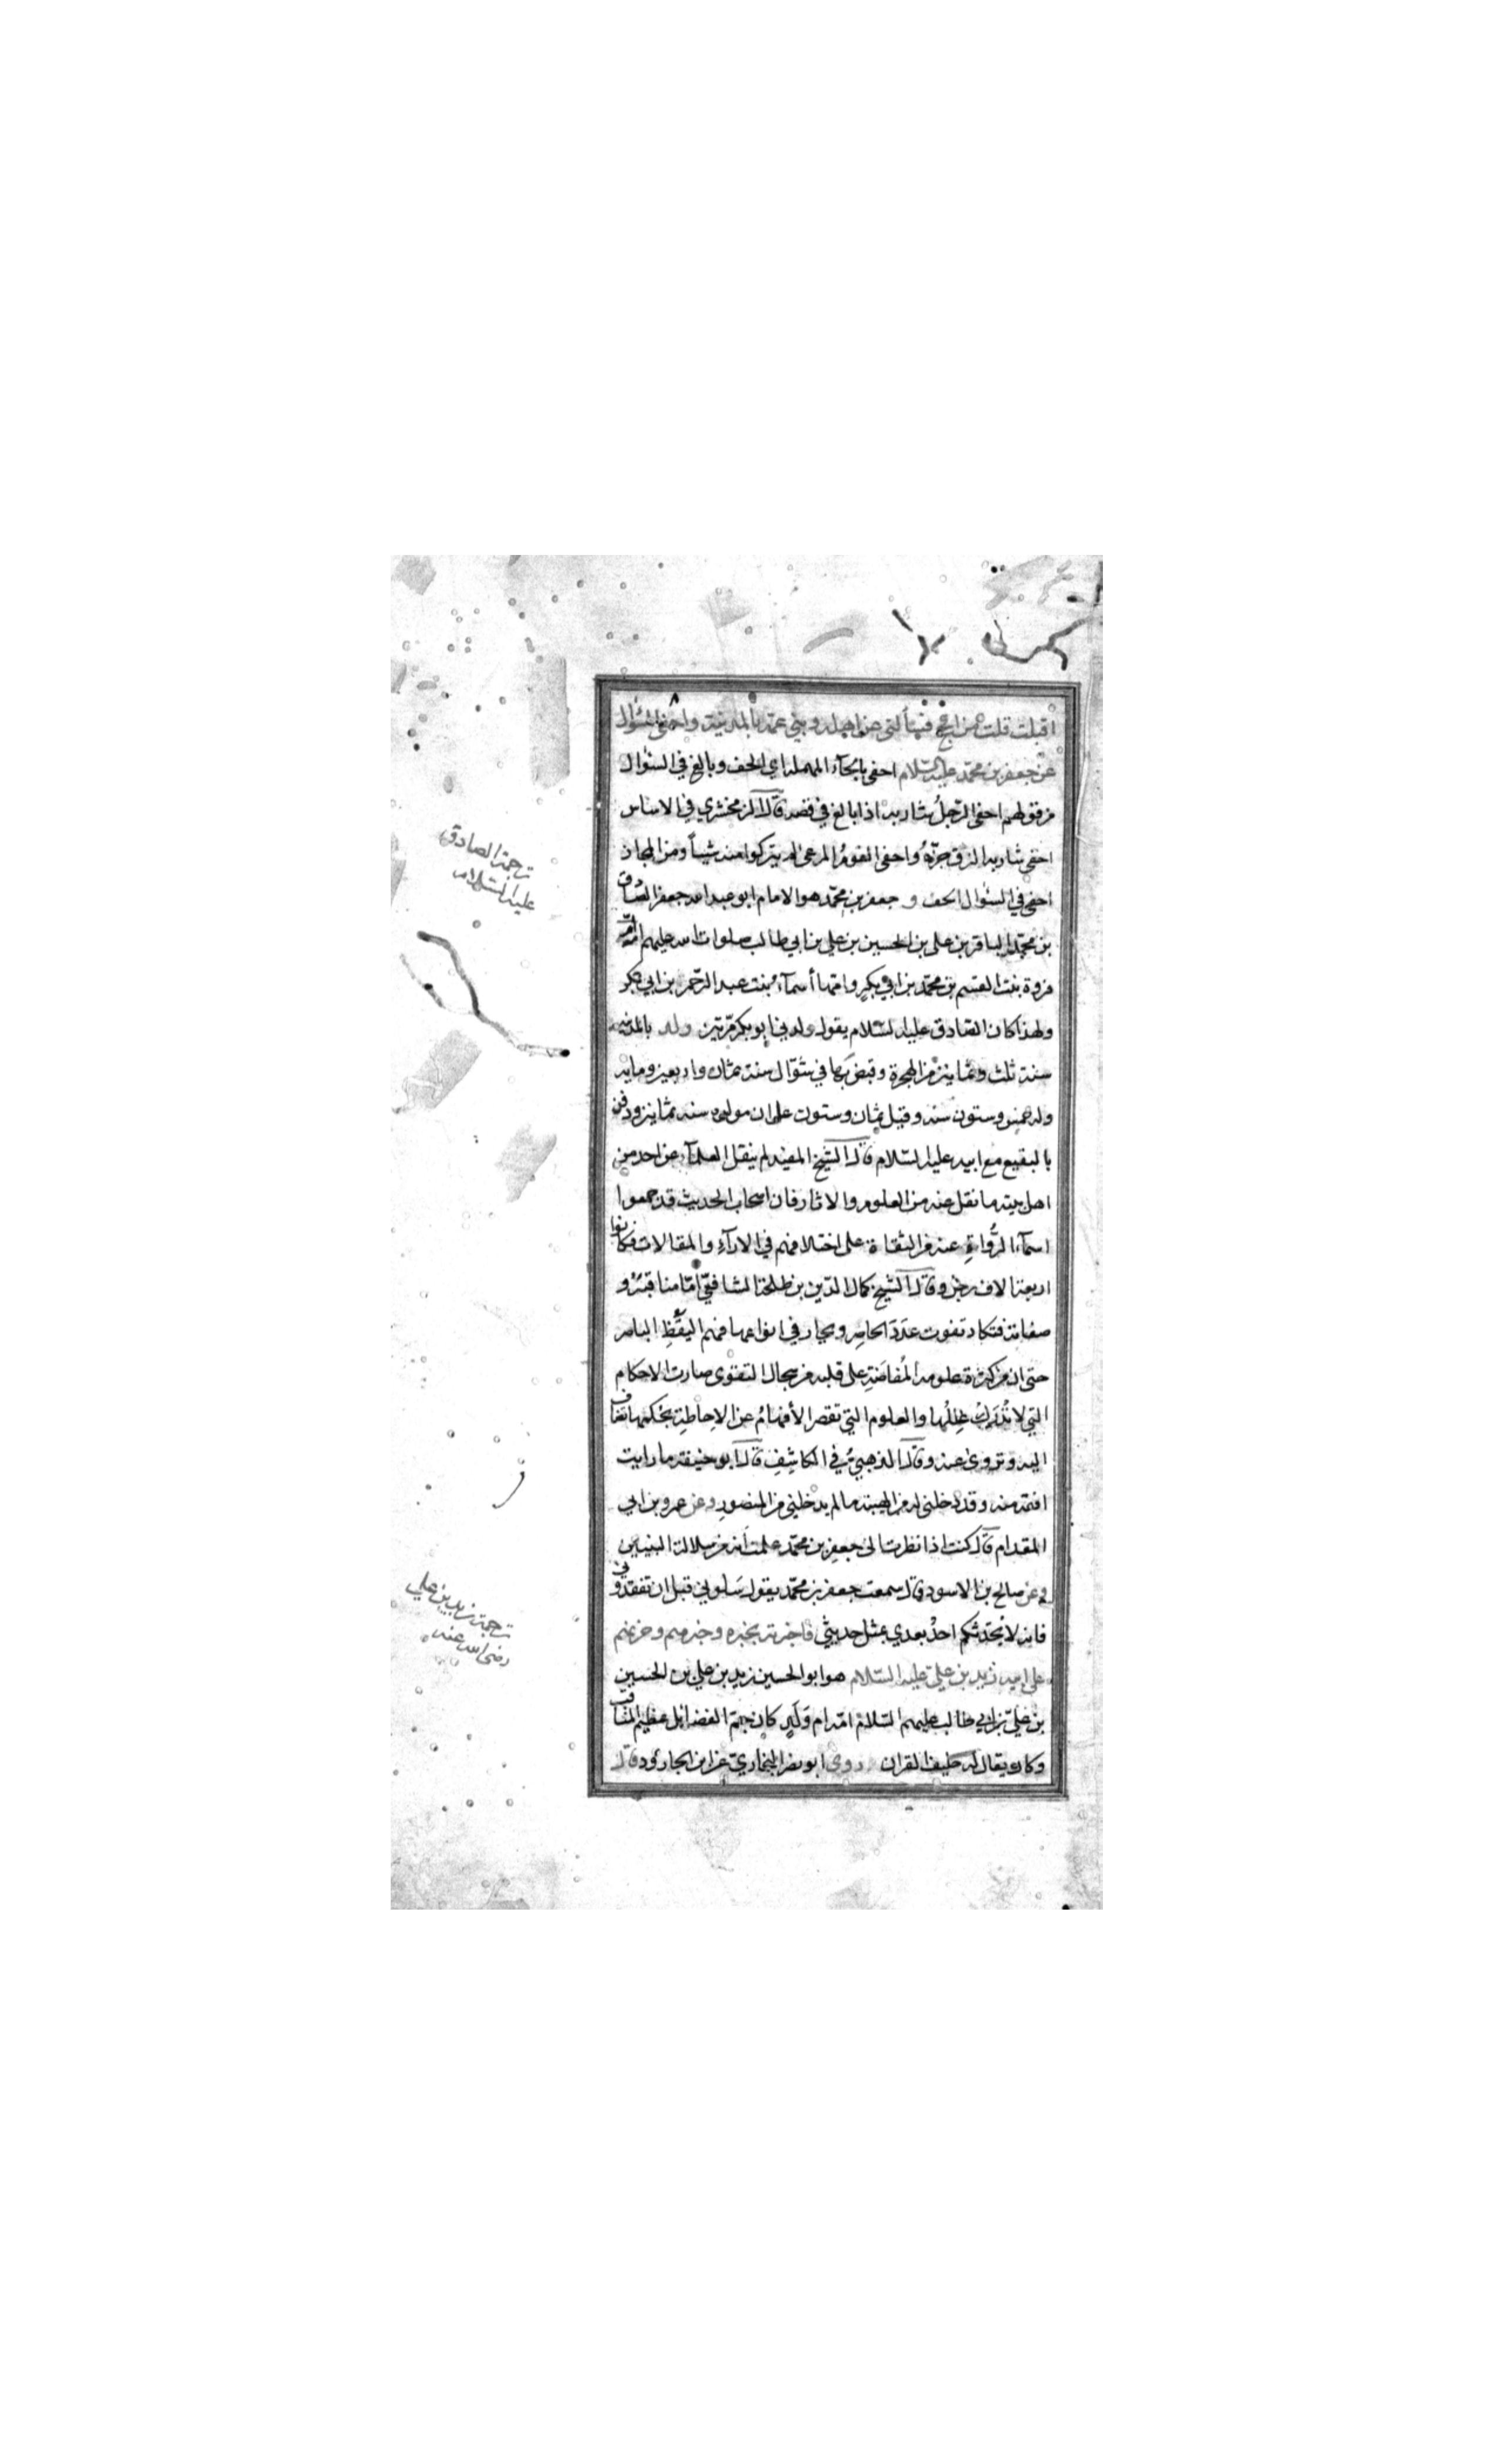 اقبلت قلت من الحج فسألني عن اهله وبني عمه بالمدينة واحفى السؤال
عن جعفر بن محمد عليه السلام احفى بالحآء المهملة اي الحف وبالغ في السئوال
من قولهم احفى الرجلُ شاربه اذا بالغ في قصه قال الزمخشري في الاساس
احفى شاربه الزق جزّهُ واحفى القومُ المرعى لم يتركوا منه شيئاً ومن المجاز
احفى في السئوال الحف و جعفر بن محمّد هو الامام ابو عبد الله جعفر الصادق
بن محمّد الباقر بن علي بن الحسين بن علي بن ابي طالب صلوات الله عليهم امّه امّ
فروة بنت القسم بن محمّد بن ابي بكرٍ وامّها أسمآء بنت عبد الرّحمن بن ابي بكر
ولهذا كان الصّادق عليه السّلام يقول ولدني ابو بكر مرّتين ولد بالمدينه
سنة ثلث وثمانين من الهجرة وقبض بها في شوّال سنة ثمان واربعين ومايه
وله خمس وستون سنه وقيل ثمان وستون على ان مولده سنه ثمانين ودفن
بالبقيع مع ابيه عليه السّلام قال الشيخ المفيد لم ينقل العلمآء عن احد من
اهل بيته ما نقل عنه من العلوم والاثار فان اصحاب الحديث قد جمعوا
اسمآء الرُّواةِ عنه من الثقاة على اختلافهم في الارآءِ والمقالات فكانوا
اربعة الاف رجل وقال الشيخ كمال الدّين بن طلحة الشافعيّ امّا مناقبُهُ و
صفاته فتكاد تفوت عَدَدَ الحاصر ويحار في انواعها فهم اليقُظِ الباصر
حتى ان من كثرة علومه المُفاضَةِ على قلبه من سجال التقوى صارت الاحكام
التي لا تُدْرَكُ عِلَلُها والعلوم التي تقصر الأفهامُ عن الاحاطةِ بحُكمها تضاف
اليه وتروى عنه وقال الذهبيُّ في الكاشِفِ قال ابو حنيفة ما رايت
افقه منه وقد دخلني له من الهيبة ما لم يدخلني من المنصور وعن عمرو بن ابي
المقدام قال كنت اذا نظرت الى جعفر بن محمّد علمت انه من سلالة النبيين
وعن صالح بن الاسود قال سمعت جعفر بن محمّد يقول سَلوني قبل ان تفقدوني
فانه لا يحدّثكم احدٌ بعدي بمثل حديثي فاخبرته بخبره وخبرهم وحزنهم
على ابيه زيد بن عليّ عليه السّلام هو ابو الحسين زيد بن علي بن الحسين
بن عليّ بن ابي طالب عليهم السّلام امّه ام وَلَدٍ كان جمّ الفضائل عظيم المناقب
وكان يقال له حليف القران روى ابو نصر البخاريّ عن ابن الجارُود قال
ترجمة الصادق
عليه السّلام
ترجمة زيد بن علي
رضى الله عنه